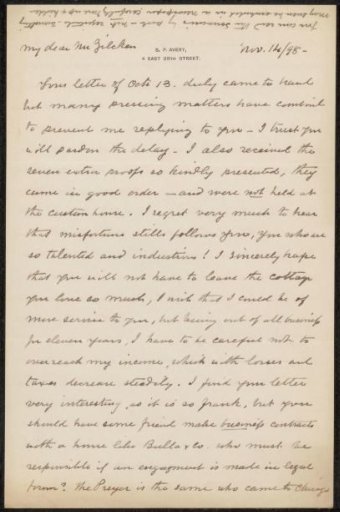 S. P. AVERY,
4 EAST 38TH STREET.
Nov. 14/98-
My dear Mr Zilcken
Your letter of Octo 13. duly came to hand
but many pressing matters have combined
to prevent me replying to you - I trust you
will pardon the delay - I also received the
seven extra proofs so kindly presented, they
came in good order - and were not held at
the custom house. I regret very much to hear
that misfortune still follows you, you who are
so talented and industrious! I sincerely hope
that you will not have to leave the cottage
you love so much, I wish that I could be of
more service to you, but being out of all business
for eleven years, I have to be careful not to
overreach my income, which with losses and
taxes decrease steadily. I find your letter
very interesting, as it is so frank, but you
should have some friend make business contracts
with a house like & Co. who must be
responsible if an engagement is made in legal
form? The is the same who came to Chicago